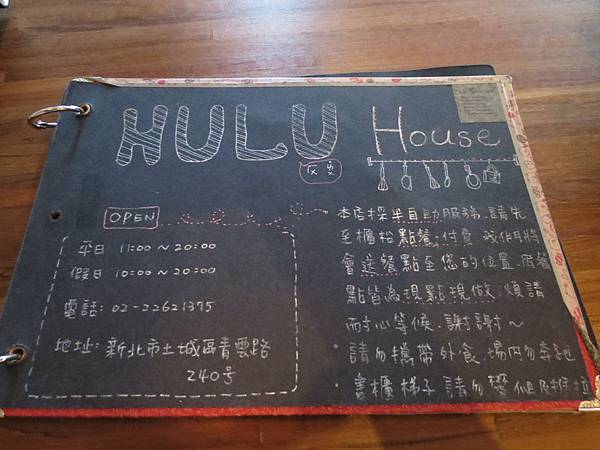 HULU House
OPEN
平日 11:00~20:00
假日 10:00~20:00
電話: 02-22621375
地址: 新北市土城區青雲路
240号
本店採半自助服務,請先
至櫃枱點餐,付費,我們將
會送餐點至您的位置,所餐
點皆為現點現做,煩請
耐心等候,謝謝~
·請勿攜帶外食、場內勿奔跑
·書櫃梯子請勿攀爬及推拉